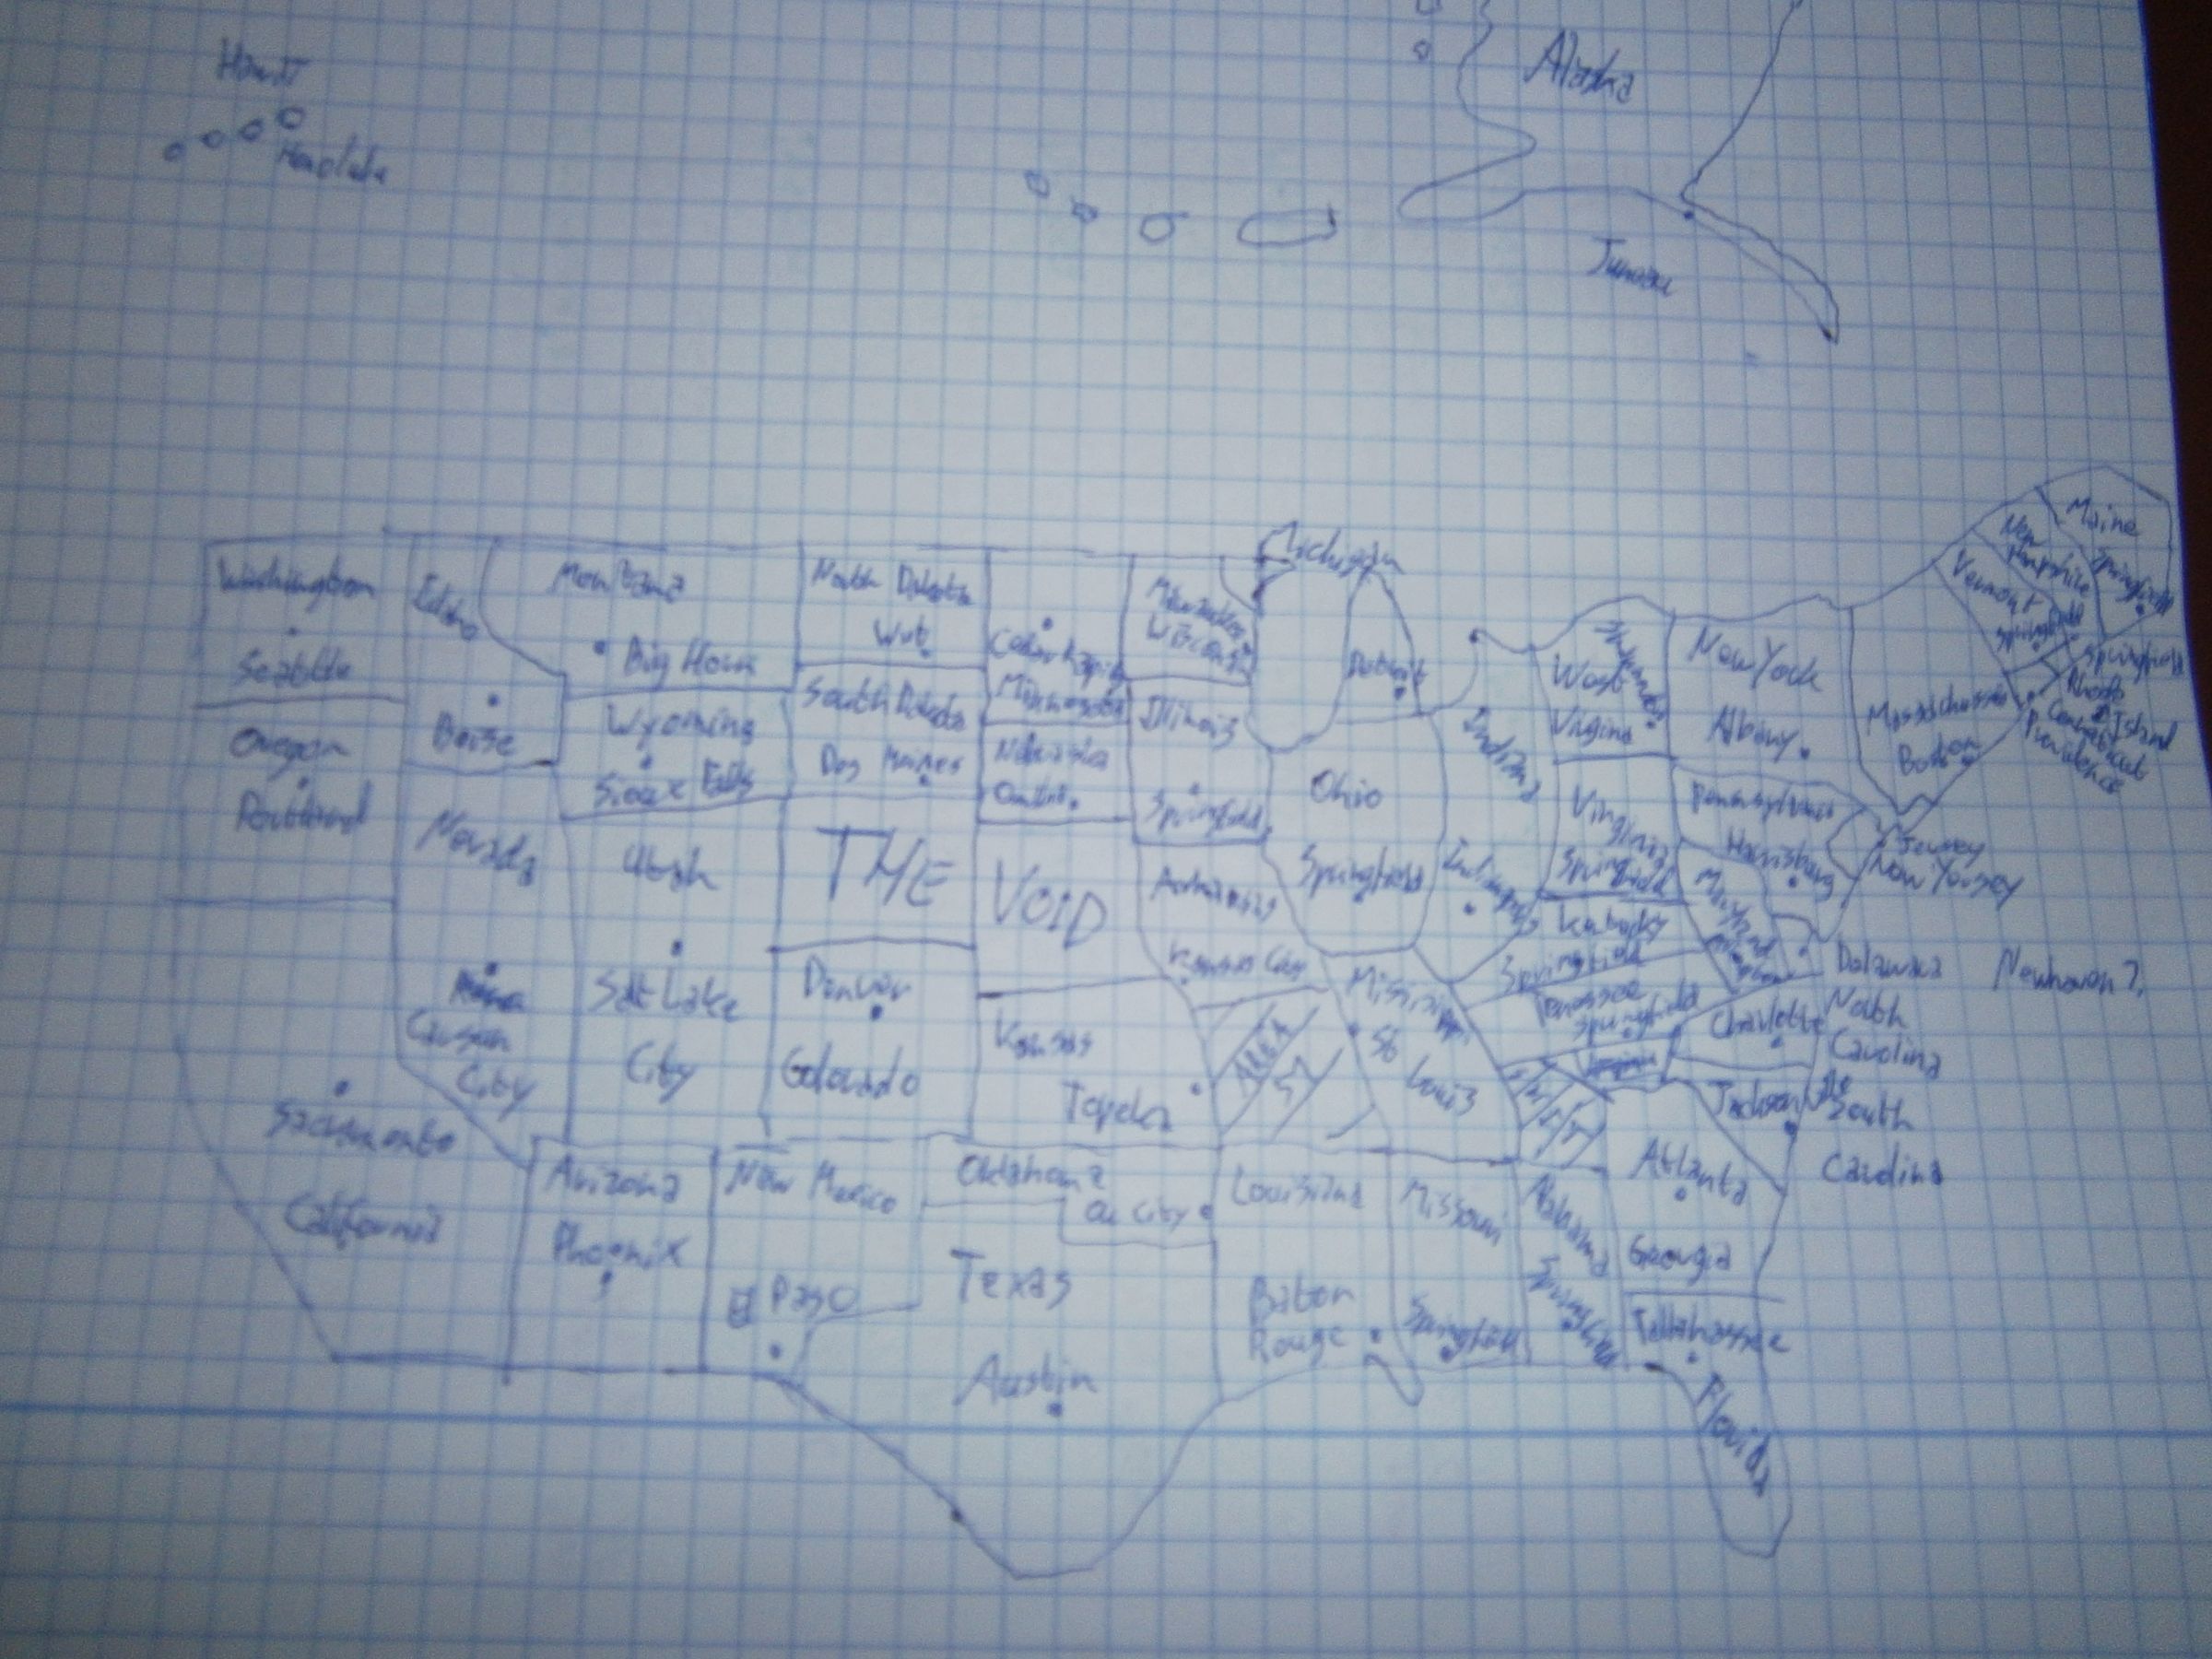 Alaska
Hawii
Honolulu
Juneau
Michigan
Maine
New
Hampshire
Springfield
Vermont
Springfield
Springfield
Washington
Idaho
Montana
North Dakota
Wut
Milwaukee
Wisconsin
West
Virginia
New York
Albany
Rhode
Island
Conneticut
Providence
Seattle
Big Horn
Cedar Rapids
Minnesota
Detroit
Massachussets
Boston
Oregon
Portland
Boise
Wyoming
Sioux Falls
South Dakota
Des Moines
Nebraska
Omaha
Illinois
Springfield
Ohio
Springfield
Indiana
Indianapolis
Virginia
Springfield
Pennsylvania
Harrisburg
Jersey
New Yorsey
Nevada
Utah
THE
VOID
Arkansas
Kansas City
Kentucky
Springfield
Maryland
Delaware
Newhaven?
Carson
City
Salt Lake
City
Denver
Colorado
Kansas
Topeka
St
Louis
Tenessee
Springfield
Charlotte
North
Carolina
Sacramento
California
Jacksonville
South
Carolina
Arizona
Phoenix
New Mexico
El Paso
Oklahoma
OK City
Texas
Austin
Louisiana
Baton
Rouge
Missouri
Springfield
Alabama
Springfield
Atlanta
Georgia
Tallahassee
Florida